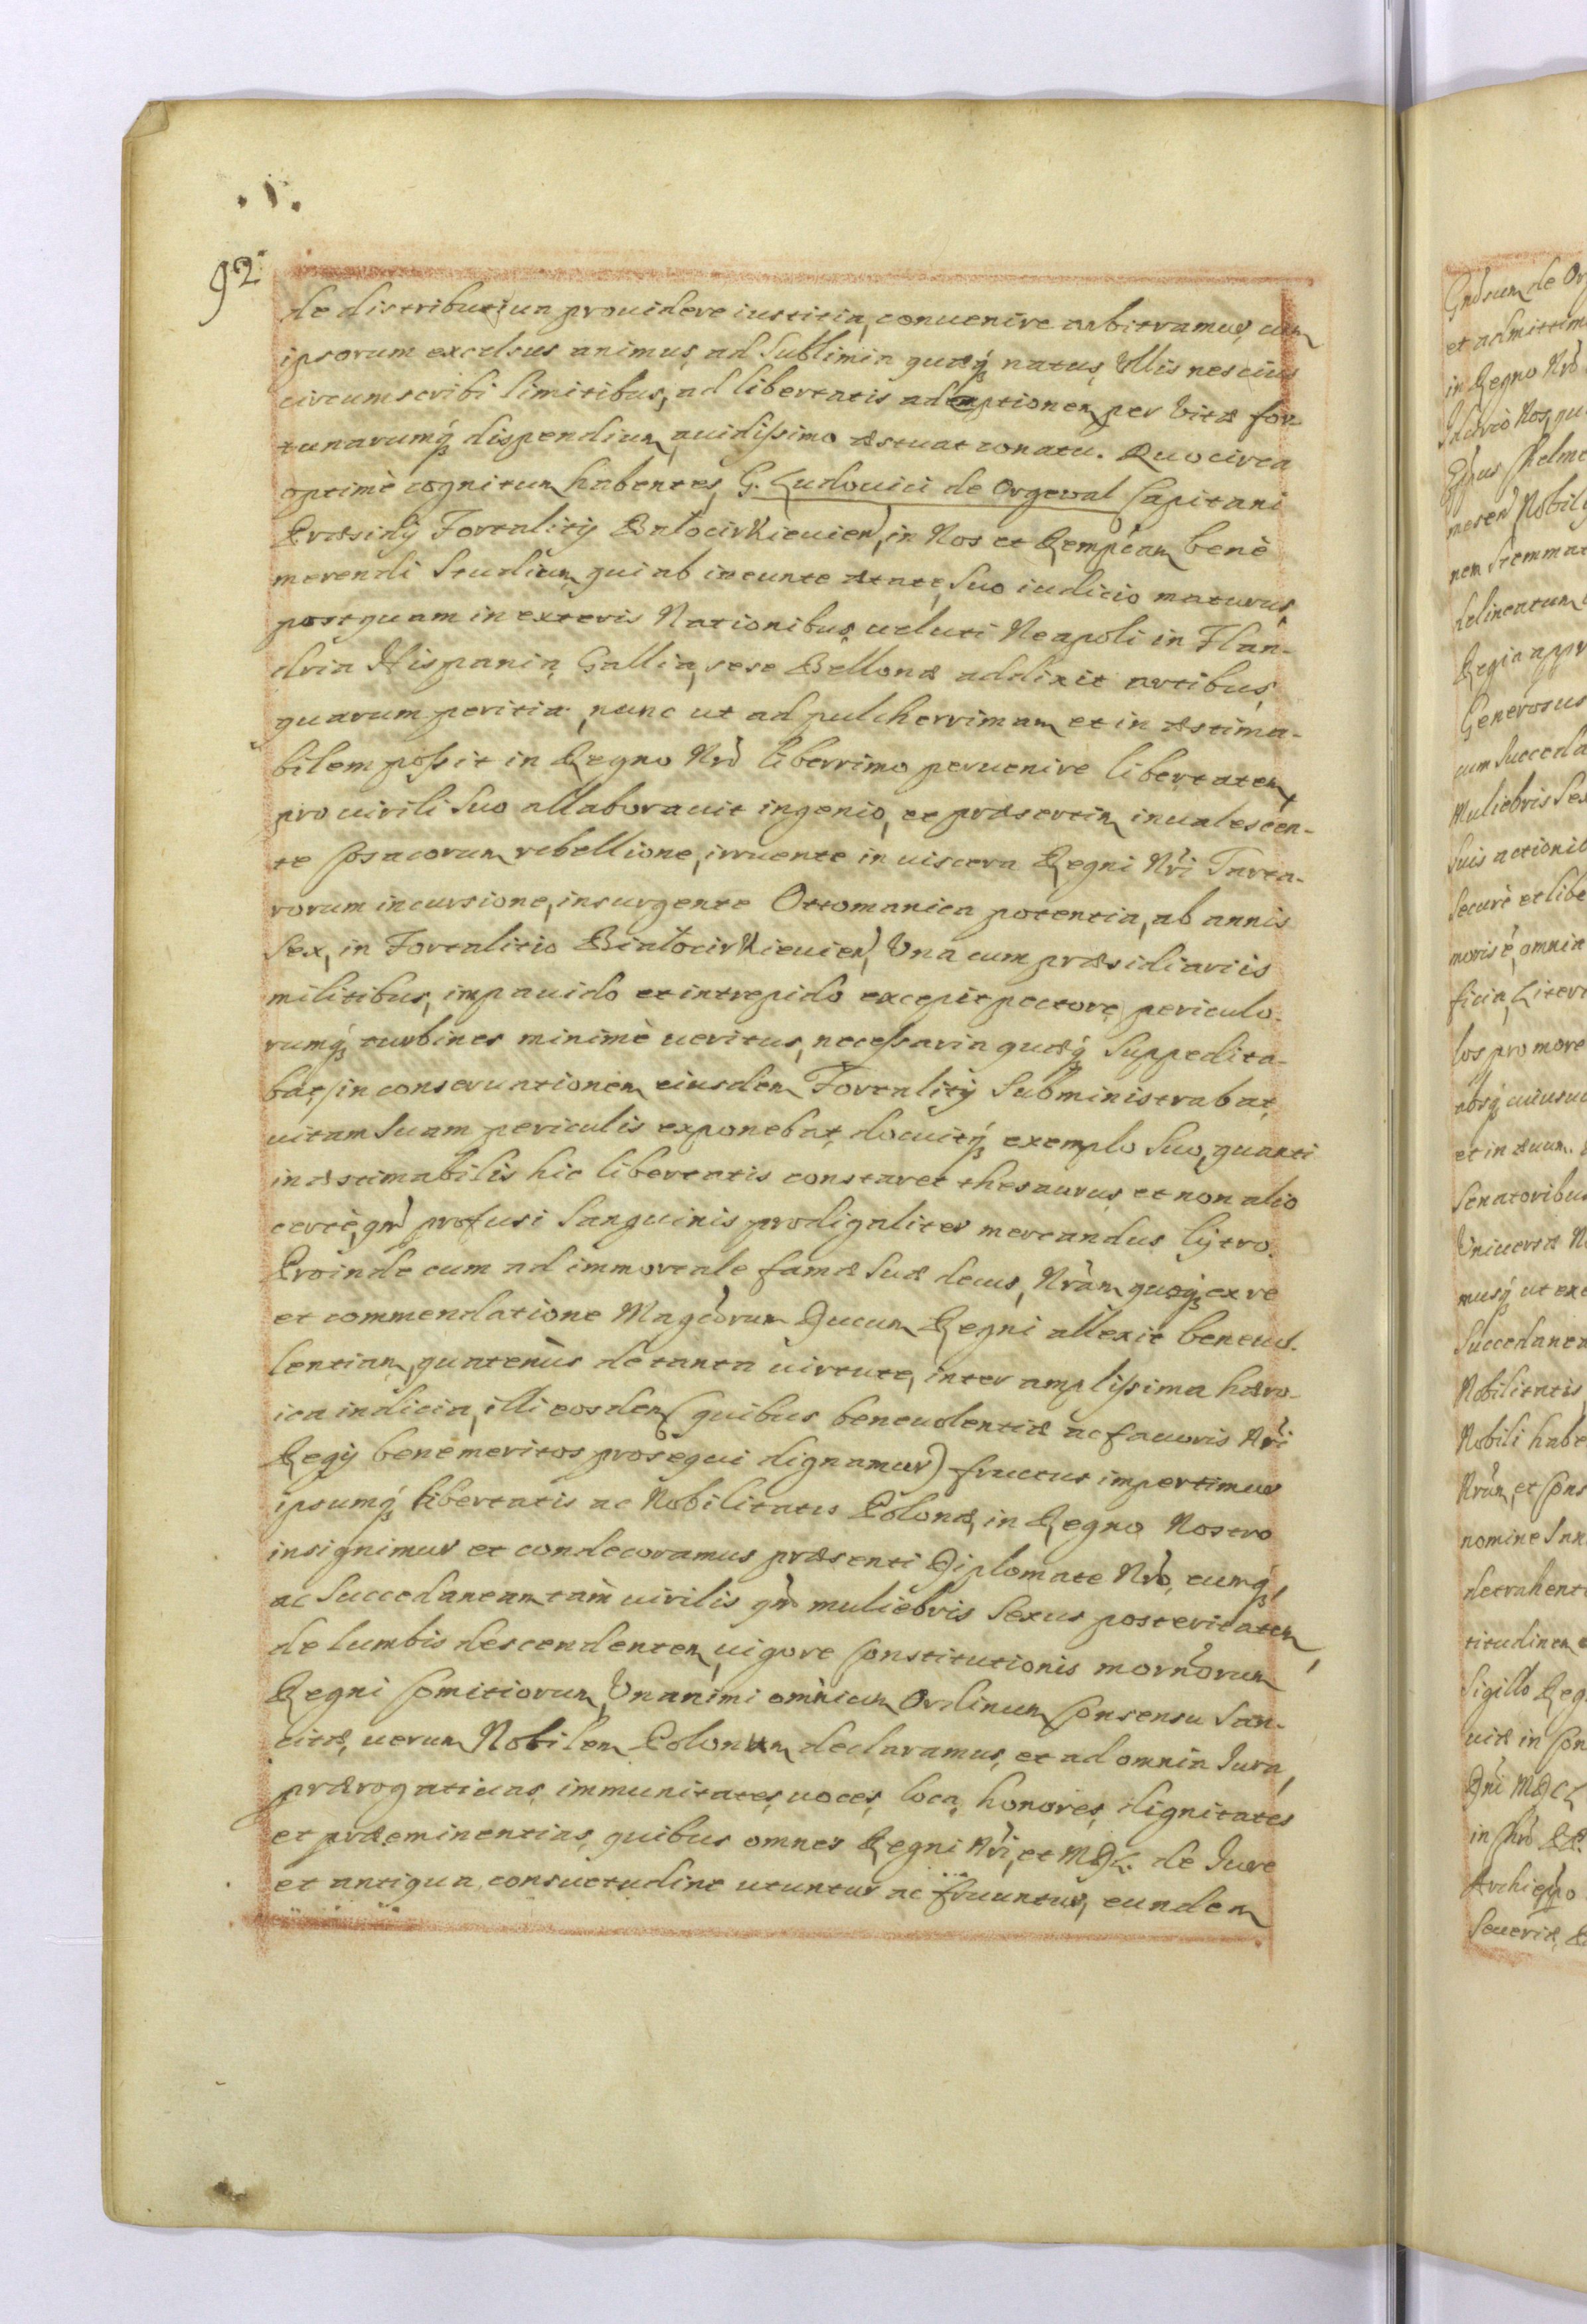 92
de distributiua prouidere iustitia, conuenire arbitramur, cum
ipsorum excelsus animus, ad Sublimia quæq́ꝫ natus, Vllis nescius
circumscribi limitibus, ad libertatis ademptionem per Vitæ for
tunarumq́ꝫ dispendium, auidissimo æstuat conatu. Quocirca
optimè cognitum habentes, G. Ludouici de Orgeval Capitani
Præsidÿ Fortalitÿ Białocirkieuien̄, in Nos et Rempcam benè
merendi Studium, qui ab ineunte ætate, Suo iudicio maturus,
postquam in exteris Nationibus, ueluti Neapoli in Flan-
dria Hispania, Gallia, sese Bellonæ addixit artibus,
quarum peritia, nunc ut ad pulcherrimam et inæstima-
bilem possit in Regno Nrō liberrimo peruenire libertatem,
pro uirili Suo allaborauit ingenio, et præsertim inualescen-
te Cosacorum rebellione, irruente in uiscera Regni Nri Tarta-
rorum incursione, insurgente Ottomanica potentia, ab annis
Sex, in Fortalitio Białocirkieuien̄, Vna cum præsidiariis
militibus, impauido et intrepido excepit pectore, periculo-
rumq́ꝫ turbines minimè ueritus, necessaria quæq́ꝫ Suppedita-
bat, in conseruationem eiusdem Fortalitÿ Subministrabat,
uitam Suam periculis exponebat, docuitq́ꝫ exemplo Suo, quanti
inæstimabilis hic libertatis constaret thesaurus, et non alio
certè, qm̄ profusi Sanguinis prodigaliter mercandus lÿtro.
Proinde cum ad immortale famæ Suæ decus, Nrām quoq́ꝫ ex re
et commendatione Magcōrum Ducum Regni allexit beneuo-
lentiam, quatenùs de tanta uirtute, inter amplissima hæro-
ica indicia, illi eosdem (quibus beneuolentiæ ac fauoris Nri
Regÿ benemeritos prosequi dignamur) fructus impertimur
ipsumq́ꝫ libertatis ac Nobilitatis Polonæ, in Regno Nostro
insignimus et condecoramus præsenti Diplomate Nrō, eumq́ꝫ,
ac Succedaneam tàm uirilis qm̄ muliebris Sexus posteritatem,
de lumbis descendentem, uigore Constitutionis mornōrum
Regni Comitiorum, Vnanimi omnium Ordinum Consensu San-
citæ, uerum Nobilem Polonum declaramus, et ad omnia Iura,
prærogatiuas, immunitates, uoces, loca, honores, dignitates
et præeminentias, quibus omnes Regni Nri, et MDL. de Iure
et antiqua consuetudine utuntur ac fruuntur, eundem
Gnōsum de Or
et admittim
in Regno Nrō
nem Stemmat
delineatum
Regia appr
Generosus
cum Succeda
Muliebris Sex
Suis actionib
Securè et libe
moris ē, omnia
ficia, Liter
los pro more
et in æuum.
Senatoribus
Vniuersæ N
musq́ꝫ ut ex
Succedanea
Nobilitatis
Nobili habe
Nrām, et Cons
nomine Sux
detrahent
titudinem
Sigillo Reg
uiæ in Con
Dni MDCL
Archiepo
Seueriæ,